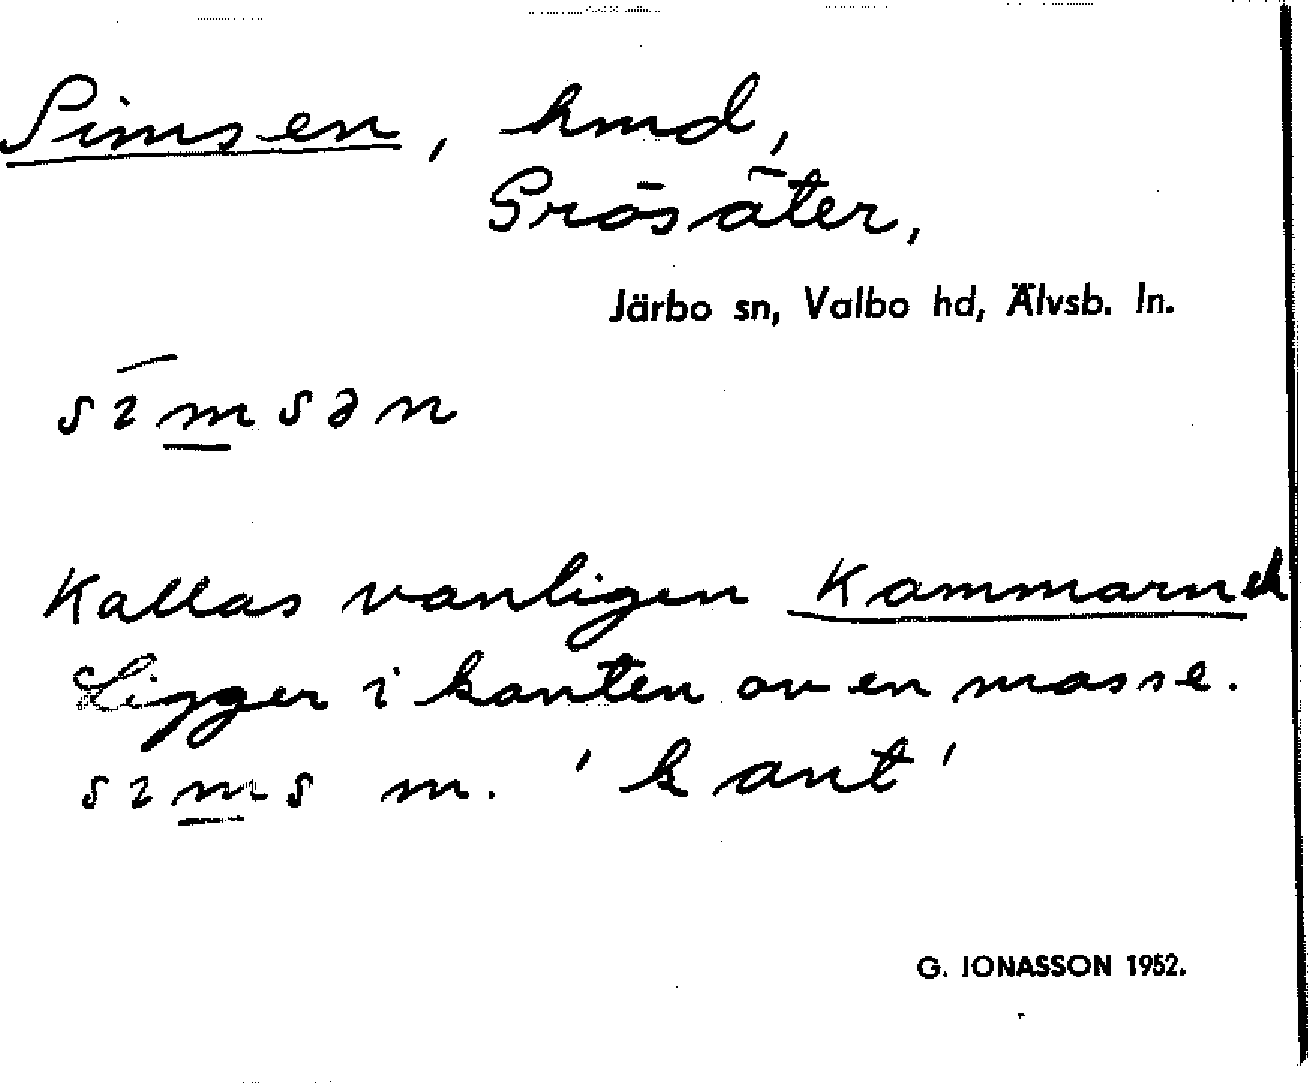 Simsen, hmd,
Grösäter,
Järbo sn, Valbo hd, Älvsb. ln.
sɪ́msən
Kallas vanligen
Ligger i kanten av en mosse.
sɪms m. 'kant'
G. JONASSON 1952.